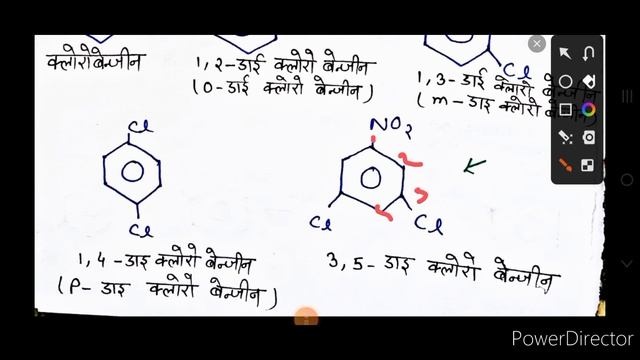 क्लोरोबेन्जीन
1,2-डाई क्लोरो बेन्जीन
(0-डाई क्लोरो बेन्जीन)
Cl
1,3-डाई क्लोरो
(m-डाइ क्लोरो
Cl
Cl
1,4-डाइ क्लोरो बेन्जीन
(P-डाइ क्लोरो बेन्जीन)
NO2
Cl
Cl
3,5-डाइ क्लोरो बेन्जीन
PowerDirector